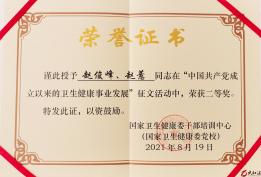 荣誉证书
谨此授予 赵俊峰、赵蕾 同志在“中国共产党成
立以来的卫生健康事业发展”征文活动中，荣获二等奖。
特发此证，以资鼓励。
国家卫生健康委干部培训中心
（国家卫生健康委党校）
2021年8月19日